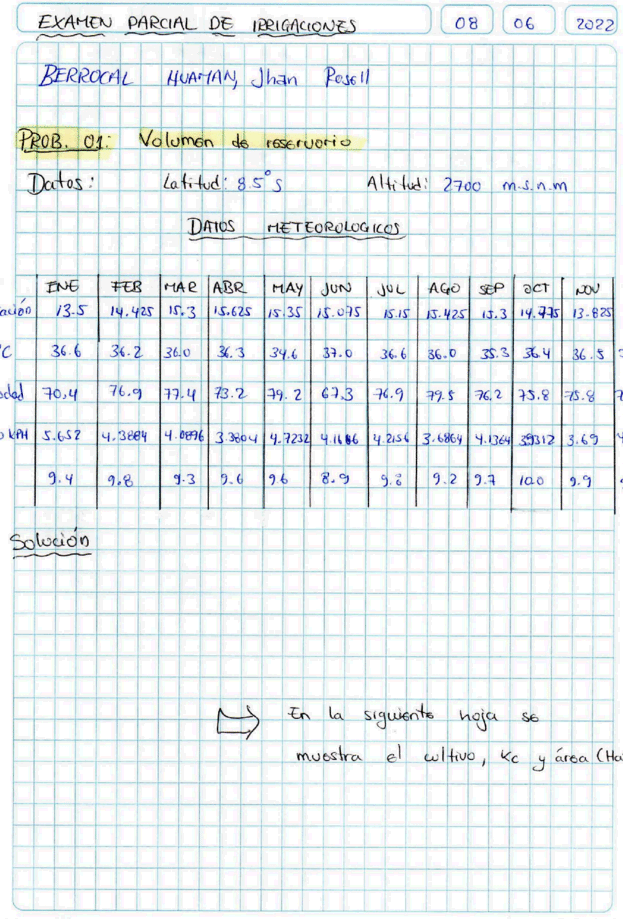 EXAMEN PARCIAL DE IRRIGACIONES 08 06 2022
BERROCAL HUAMAN, Jhan Rosell
PROB. 01: Volumen de reservorio
Datos: Latitud: 8.5° S Altitud: 2700 m.s.n.m
DATOS METEOROLOGICOS
ENE FEB MAR ABR MAY JUN JUL AGO SEP OCT NOV
ación 13.5 14.425 15.3 15.625 15.35 15.075 15.15 15.425 15.3 14.775 13.825
°C 36.6 36.2 36.0 36.3 34.6 37.0 36.6 36.0 35.3 36.4 36.5
edad 70,4 76.9 77.4 73.2 79.2 67.3 76.9 79.5 76.2 75.8 75.8
o KPH 5.652 4.3884 4.0896 3.3804 4.7232 4.1686 4.2156 3.6864 4.1364 39312 3.69
9.4 9.8 9.3 9.6 9.6 8.9 9.8 9.2 9.7 10.0 9.9
Solución
En la siguiente hoja se
muestra el cultivo, Kc y área (Ha